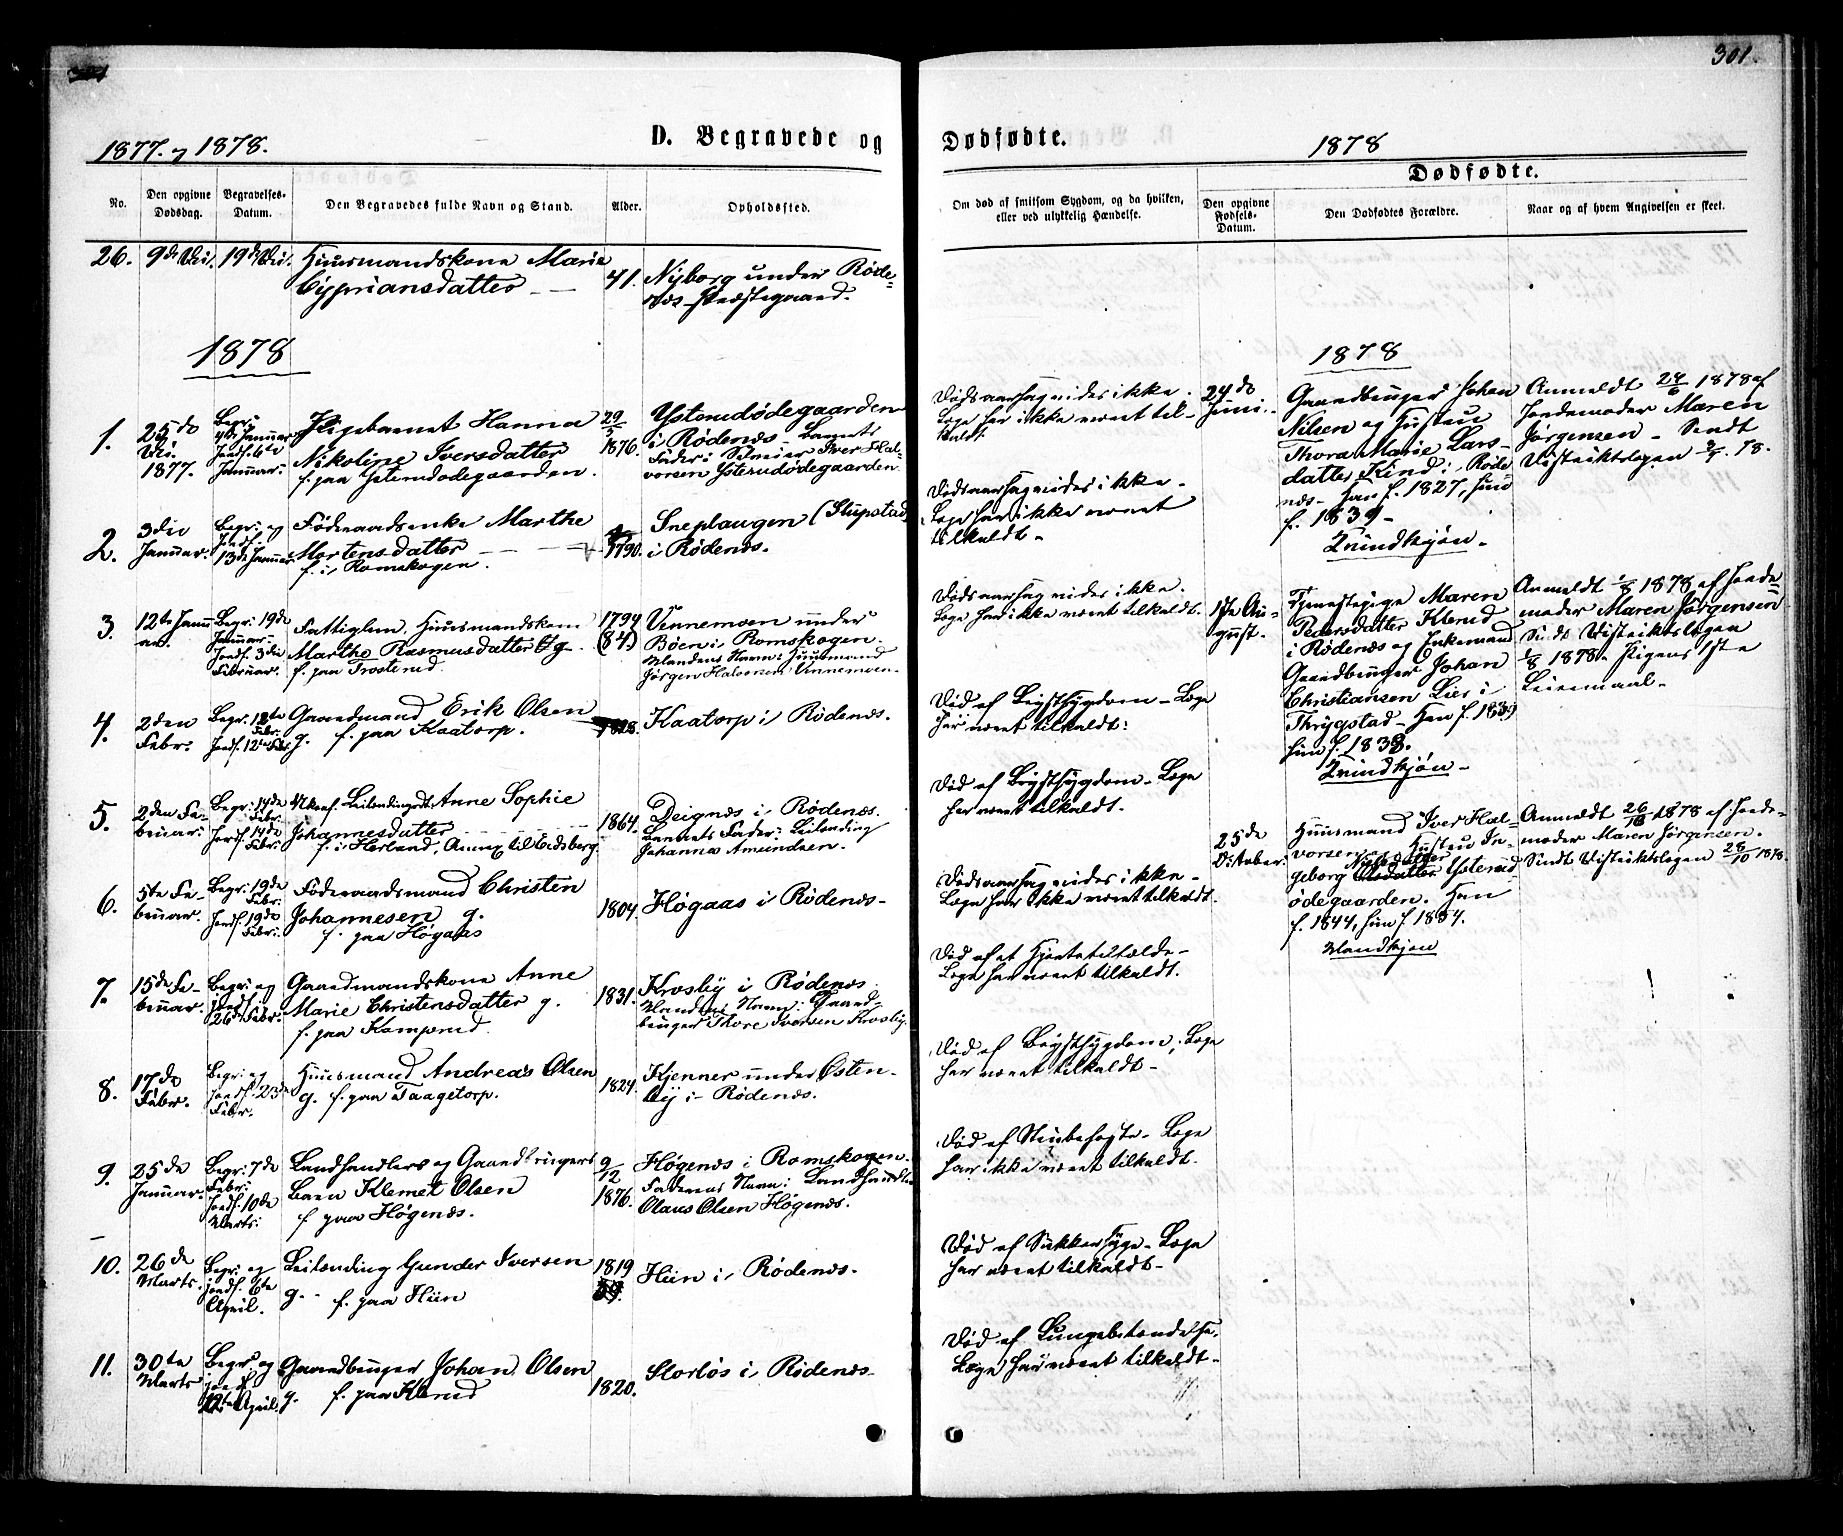 301.
1877. og 1878.
D. Begravede og
Dødfødte.
1878
Dødfødte.
No.
Den opgivne Dødsdag.
Begravelses-Datum.
Den Begravedes fulde Navn og Stand.
Alder.
Opholdssted.
Om død af smitsom Sygdom, og da hvilken, eller ved ulykkelig Hændelse.
Den opgivne Fødsels-Datum.
Den Dødfødtes Forældre.
Naar og af hvem Angivelsen er skeet.
26.
Huusmandskone Marie
Cypriansdatter
41.
Nyborg under Røde-
næs Præstegaard.
1878
1.
25de
1877.
Begr:
4de Januar
Jordf. 6te
Januar.
Pigebarnet Hanna
Nikoline Iversdatter
f. paa Ysterudødegaarden.
1876.
Ysterudødegaarden
i Rødenæs - Barnets
Fader: Iver Hal-
vorsen Ysterudødegaarden
Dødsaarsag vides ikke.
Læge har ikke været til-
kaldt.
2.
3die
Januar.
Begr: og
Jordf.
13de Januar
Føderaadsenke Marthe
Mortensdatter
f. i Romskogen.
1790.
Sneplaugen (Slupstad)
i Rødenæs.
Dødsaarsag vides ikke.
Læge har ikke været
tilkaldt.
3.
12te Janu
ar.
Begr. 19de
Januar.
Jordf. 3die
Februar.
Fattiglem, Huusmandskone
Marthe Rasmusdatter
f. paa Trosterud.
1794
(84)
Vennemoen under
Bøen i Romskogen.
Mandens Navn: Huusmand
Jørgen Halvorsen Vennemoen.
Dødsaarsag vides ikke.
Læge har ikke været tilkaldt.
4.
2den
Febr.
Begr. 12te
Febr.
Jordf. 12te Febr.
Gaardmand Erik Olsen
g. f. paa Kaatorp.
Kaatorp i Rødenæs.
Død af Brystsygdom - Læge
har været tilkaldt.
5.
2den Fe-
bruar.
Begr. 14de
Febr.
Jordf. 14de
Febr.
Anne Sophie
Johannesdatter
f. i Herland, Annex til Eidsberg.
1864.
Deignæs i Rødenæs.
Barnets Fader: Leilending
Johannes Amundsen.
Død af Brystsygdom - Læge
har været tilkaldt.
6.
5te Fe-
bruar.
Begr. 19de
Febr.
Jordf. 19de
Febr.
Føderaadsmand Christen
Johannesen g.
f. paa Høgaas
1804.
Høgaas i Rødenæs.
Dødsaarsag vides ikke -
Læge har ikke været tilkaldt.
7.
15de Fe-
bruar.
Begr. og
jordf.
26de Febr.
Gaardmandskone Anne
Marie Christensdatter g.
f. paa Kamperud.
1831.
Krosby i Rødenæs
Mandens Navn: Gaard-
bruger Thore Iversen Krosby.
Død af et Hjertetilfælde -
Læge har været tilkaldt.
8.
17de
Febr.
Begr. og
jordf. 23de
Febr.
Huusmand Andreas Olsen
g. f. paa Taagetorp.
1824.
Kjenner under Østen-
by i Rødenæs.
Død af Brystsygdom, Læge
har været tilkaldt -
9.
25de
Januar.
Begr. 7de
Febr.
Jordf. 10de
Marts.
Landhandlers og Gaardbrugers
Barn Klemet Olsen
f. paa Høgenæs.
9/12
1876.
Høgenæs i Romskogen.
Faderens Navn: Landhandler
Olaus Olsen Høgenæs.
Død af Strubehoste - Læge
har ikke været tilkaldt.
10.
26de
Marts.
Begr. og
jordf. 6te
April.
Leilending Gunder Iversen
g. - f. paa Hien
1819
Hien i Rødenæs.
Død af Sukkersyge - Læge
har været tilkaldt -
11.
30te
Marts
Begr. og
jordf.
April.
Gaardbruger Johan Olsen
g. f. paa Klerud
1820.
Storløs i Rødenæs -
Død af Lungebetændelse.
Læge har været tilkaldt -
1878
24de
Juni.
Gaardbruger Johan
Nilsen og Hustru
Thora Marie Lars-
datter Lund i Røde
næs - han f. 1827, hun
f. 1839 -
Kvindekjøn -
Anmeldt 24/6 1878 af
Jordemoder Maren
Jørgensen - Sendt
Distriktslægen 78.
1ste Au-
gust.
Tjenestepige Maren
Pedersdatter Klerud
i Rødenæs og Enkemand
Gaardbruger Johan
Christiansen Lier i
Thrygstad - Han f. 1839
hun f. 1838.
Kvindekjøn -
Anmeldt 1/8 1878 af Jorde-
moder Maren Jørgensen
Sendt Distriktslægen
1878. Pigens 1ste
Leiermaal -
25de
October.
Huusmand Iver Hal-
vorsen og Hustru In-
geborg Nilsdatter Ysterud
ødegaarden. Han
f. 1844, hun f. 1854.
Mandkjøn
Anmeldt 26/10 1878 af Jorde-
moder Maren Jørgensen.
Sendt Distriktslægen 28/10 1878.